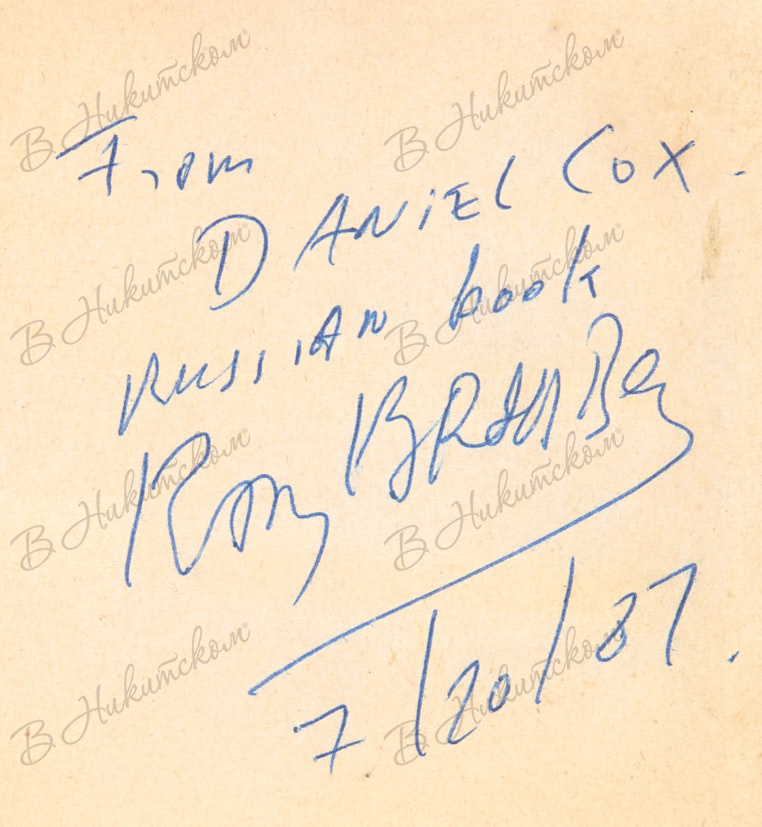 From
DANIEL COX.
RUSSIAN book
Ray BRADBURY
7/20/87.
В Никитском
В Никитском
В Никитском
В Никитском
В Никитском
В Никитском
В Никитском
В Никитском